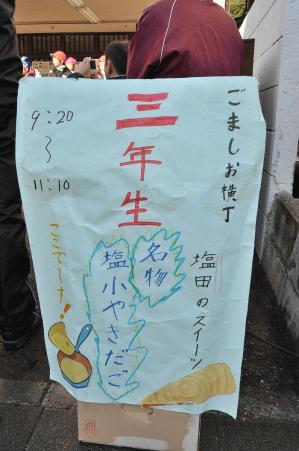 ごましお横丁
塩田のスイーツ
三年生
名物
塩小やきだご
9:20
〜
11:10
ここでーす!